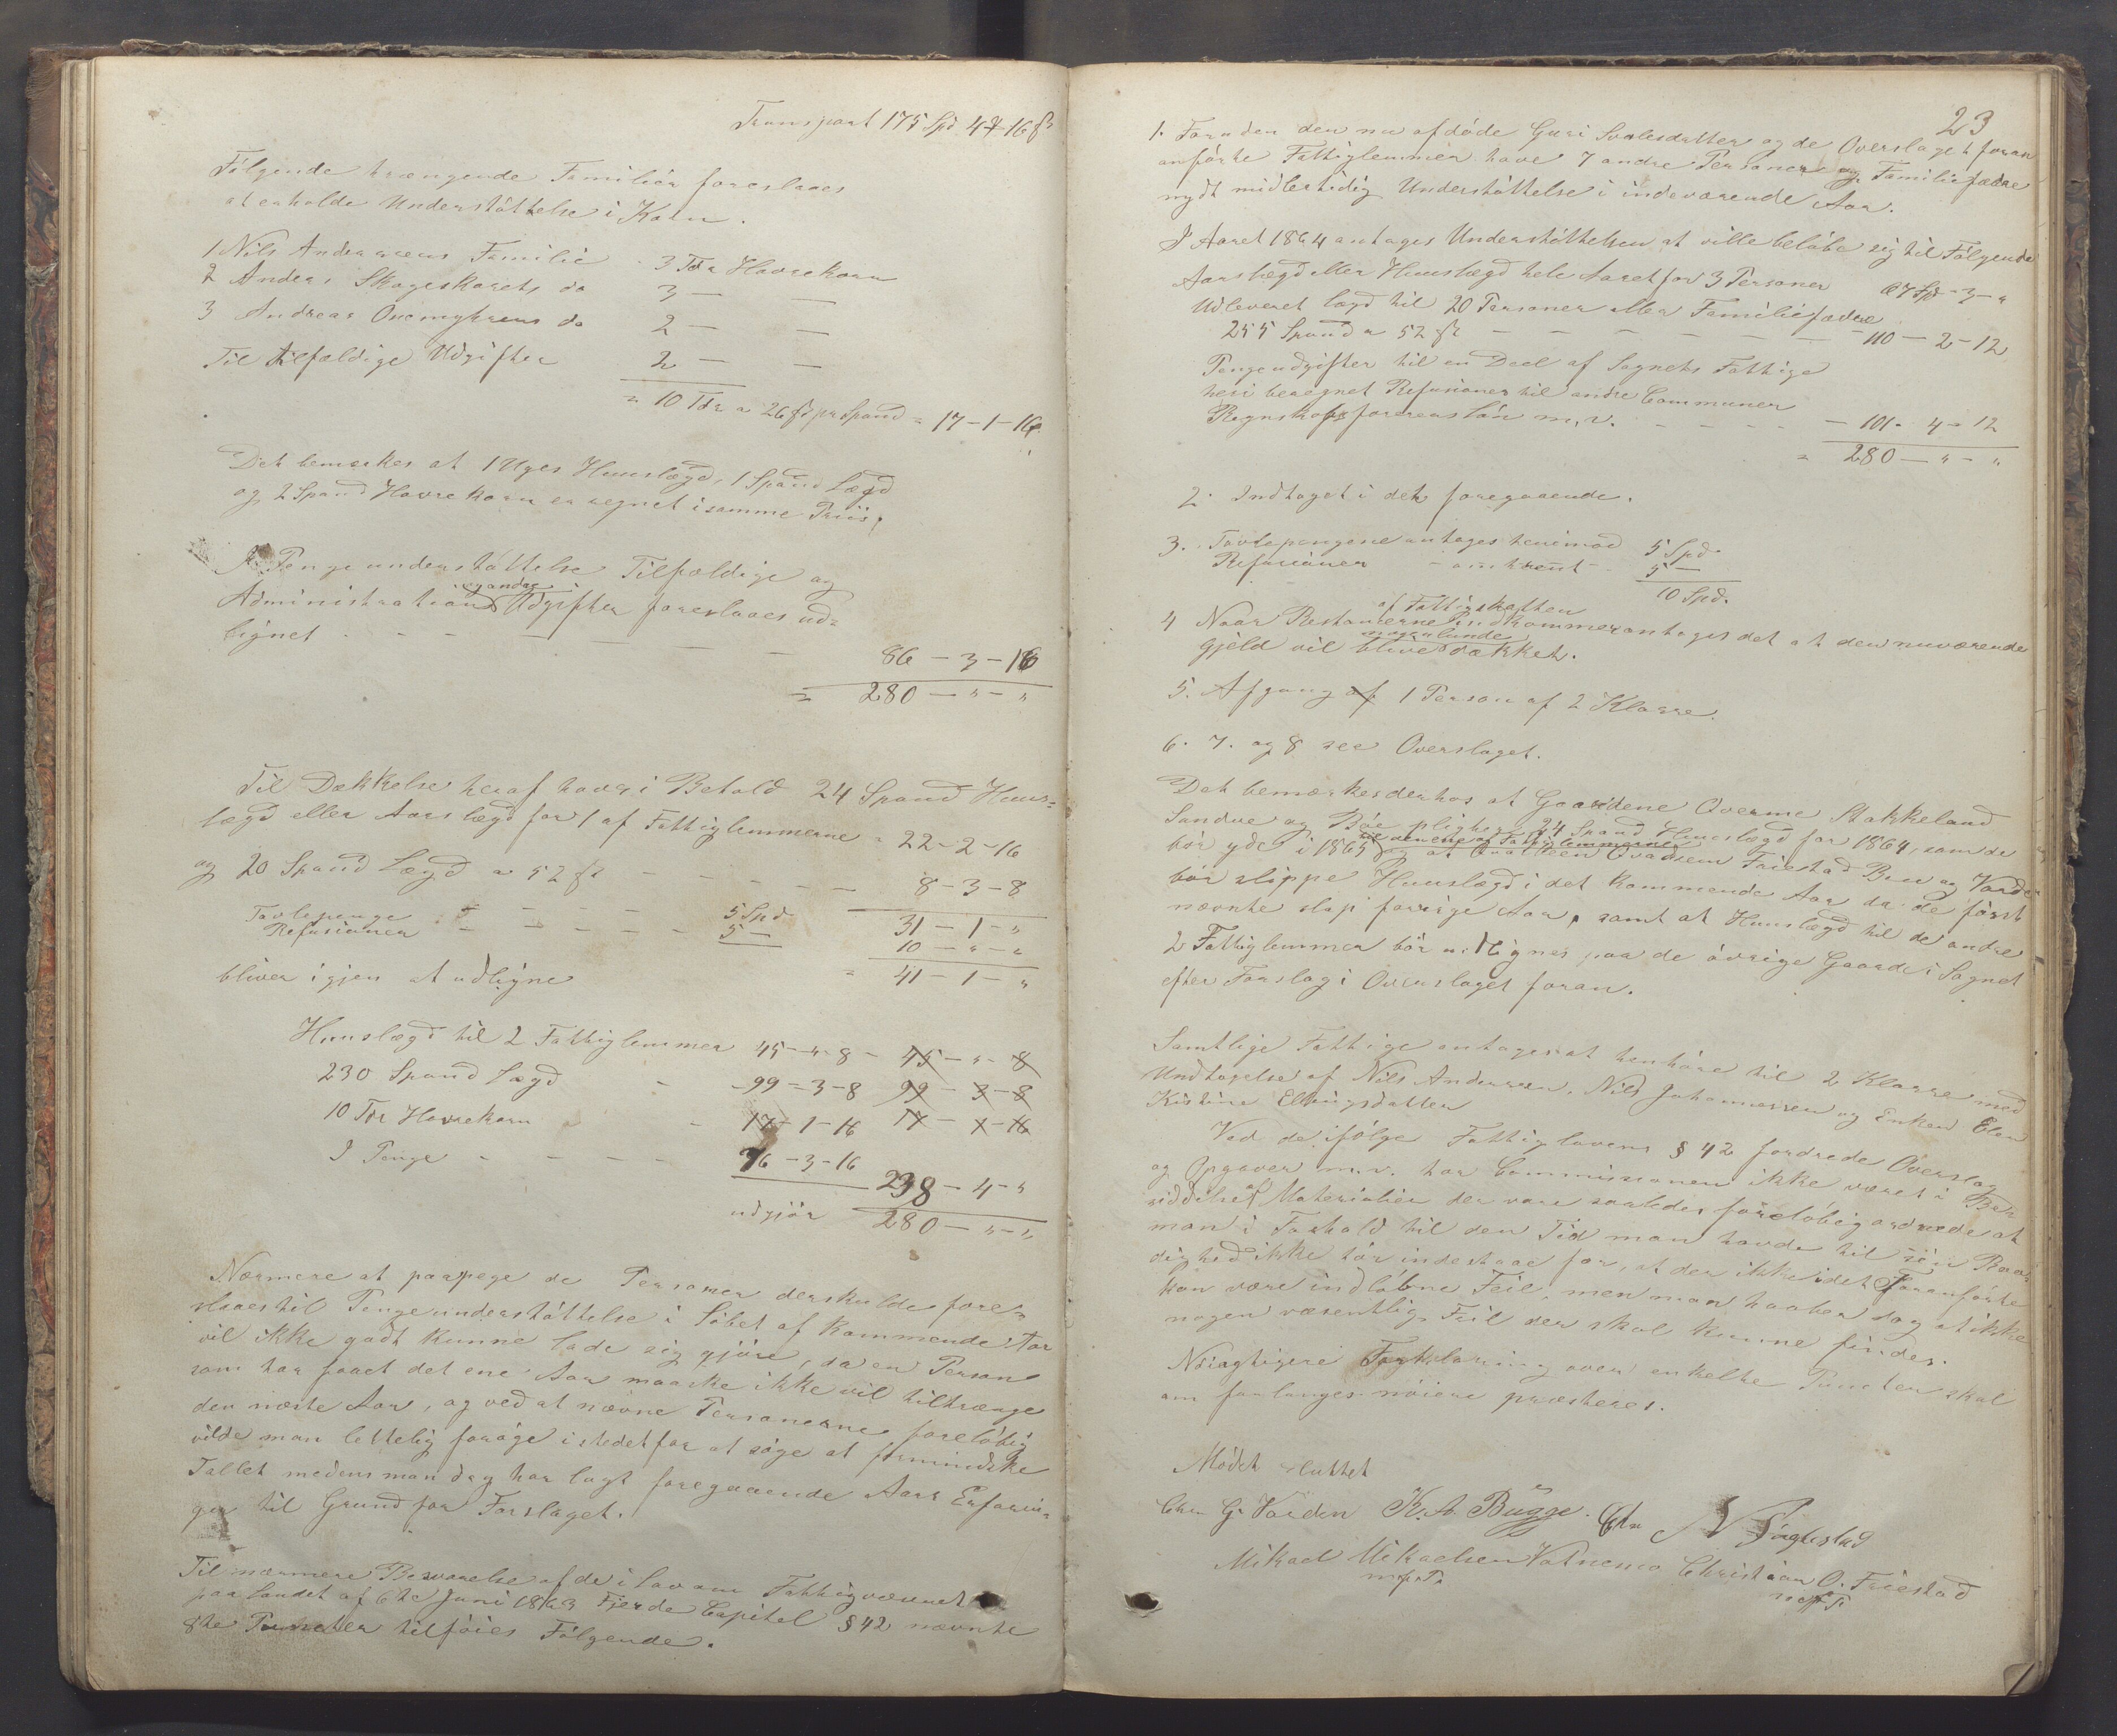 Transport 175 Spd 4 16 ſs
Følgende trængende Familier foreslaaes
at erholde Understøttelse i Korn.
1 Nils Andersens Familie - 3 Tdr Havrekorn
2 Anders Skogeskarets do 3 — —
3 Andreas do 2 — —
Til tilfældige Udgifter 2 — —
= 10 Tdr a 26 ſs pr Spand = 17-1-16
Det bemærkes at 1 Uges Huuslægd, 1 Spand Lægd
og 2 Spand Havrekorn er regnet i samme Priis.
I Pengeunderstøttelse Tilfældige og
Administrations og andre Udgifter foreslaaes ud-
lignet - - - — — — — 86 - 3 - 16
= 280 - " - "
Til Dækkelse heraf haves i Behold 24 Spand Huus-
lægd eller Aarslægd for 1 af Fattiglemmerne = 22-2-16
og 20 Spand Lægd a 52 ſs - - - - - 8-3-8
Tavlepenge - - - - 5 Spd 31 - 1 - "
Refusioner - - - - - 5 — 10 - " - "
bliver igjen at udligne = 41 - 1 - "
Huuslægd til 2 Fattiglemmer 45-"-8 - 45 - " - 8
230 Spand Lægd - - 99-3-8 99 - 3 - 8
10 Tdr Havrekorn - - 17-1-16 17 - 1 - 16
I Penge - - - - 76-3-16
238 - 4 - "
udgjør 280 - " - "
Nærmere at paapege de Personer der skulde fore-
slaaes til Pengeunderstøttelse i Løbet af kommende Aar
vil ikke godt kunne lade sig gjøre, da en Person
som har faaet det ene Aar maaske ikke vil tiltrænge
den næste Aar, og ved at nævne Personerne foreløbig
vilde man lettelig forøge istedetfor at søge at formindske
Tallet medens man dog har lagt foregaaende Aars Erfarin-
ger til Grund for Forslaget.
Til nærmere Besvarelse af de i Lov om Fattigvæsenet
paa Landet af 6te Juni 1863 Fjerde Capitel § 42 nævnte
8te Puncter tilføies Følgende.
23
1. Foruden den nu afdøde Guri Svalesdatter og de Overslaget foran
anførte Fattiglemmer have 7 andre Personer og Familiefædre
nydt midlertidig Understøttelse i indeværende Aar.
I Aaret 1864 antages Understøttelsen at ville beløbe sig til Følgende
Aarslægd eller Huuslægd hele Aaret for 3 Personer 67 Spd - 3 - "
Udleveret lægd til 20 Personer eller Familiefædre
255 Spand a 52 ſs — — — — — — - 110 - 2 - 12
Pengeudgifter til en Deel af Sognets Fattige
heri beregnet Refusioner til andre Communer
Regnskabsførerens løn m.v. - - - - - 101 - 4 - 12
= 280 - " - "
2. Indtaget i det foregaaende.
3. Tavlepengene antages henimod 5 Spd.
Refusioner - omtrent - 5 —
10 Spd.
4 Naar Restancerne af Fattigskatten indkommer antages det at den nuværende
gjeld vil blive nogenlunde dækket.
5. Afgang af 1 Person af 2 Klasse.
6. 7. og 8 see Overslaget.
Det bemærkes derhos at Gaardene Overme Stokkeland
Sandve og Bøe pligter 24 Spand Huuslægd for 1864, som de
bør yde i 1865 og at Friestad Bue og Varden
bør slippe Huuslægd i det kommende Aar da de først
nævnte slap forrige Aar, samt at Huuslægd til de andre
2 Fattiglemmer bør udlignes paa de øvrige Gaarde i Sognet
efter Forslag i Overslaget foran.
Samtlige Fattige antages at henhøre til 2 Klasse med
Undtagelse af Nils Andersen, Nils Johannessen og Enken Elen
Kistine Ellingsdatter
Ved de ifølge Fattiglovens § 42 fordrede Overslag
og Opgaver m.v. har Commissionen ikke været i Be-
siddelse af Materialier der vare saaledes foreløbig ordnede at
man i Forhold til den Tid man havde til sin Raa-
dighed ikke tør indestaae for, at der ikke i det Foranførte
kan være indløbne Feil, men man haaber dog at ikke
nogen væsentlig Feil der skal kunne findes.
Nøiagtigere Forklaring over enkelte Puncter skal
om forlanges nøiere præsteres.
Mødet sluttet
Chr. G. Varden K. A. Bugge. N Tinglestad
Mikael Mikaelsen Vatnemo Christian O. Friestad
m.f.P. m.f.P.